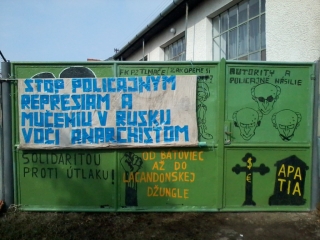 STOP POLICAJNÝM
REPRESIAM A
MUČENIU V RUSKU
VOČI ANARCHISTOM
AUTORITY A
POLICAJNÉ NÁSILIE
SOLIDARITOU
PROTI ÚTLAKU!
OD BATOVIEC
AŽ DO
LACANDONSKEJ
DŽUNGLE
$
€
APA
TIA